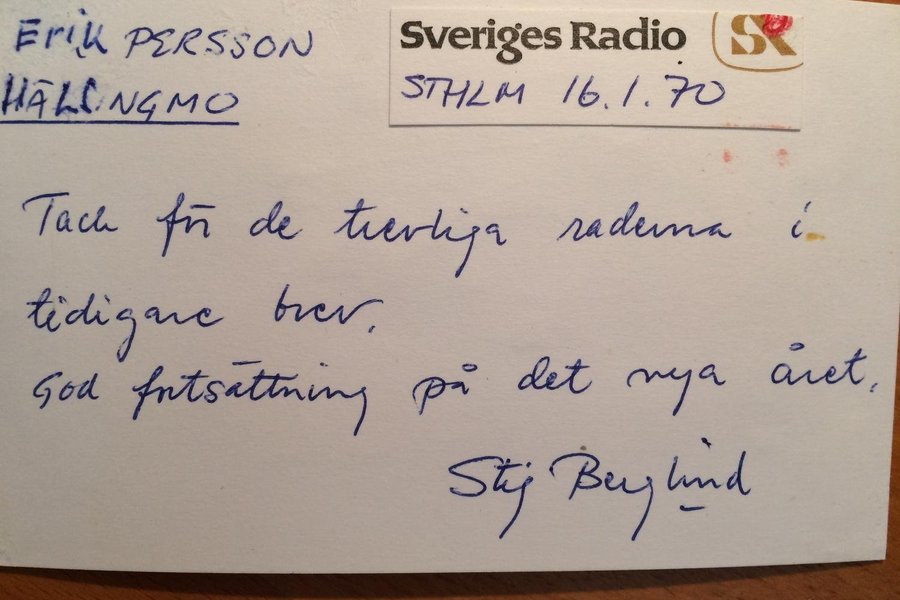 Erik PERSSON
HÄLLNGMO
Sveriges Radio SR
STHLM 16.1.70
Tack för de trevliga raderna i
tidigare brev.
God fortsättning på det nya året.
Stig Berglind